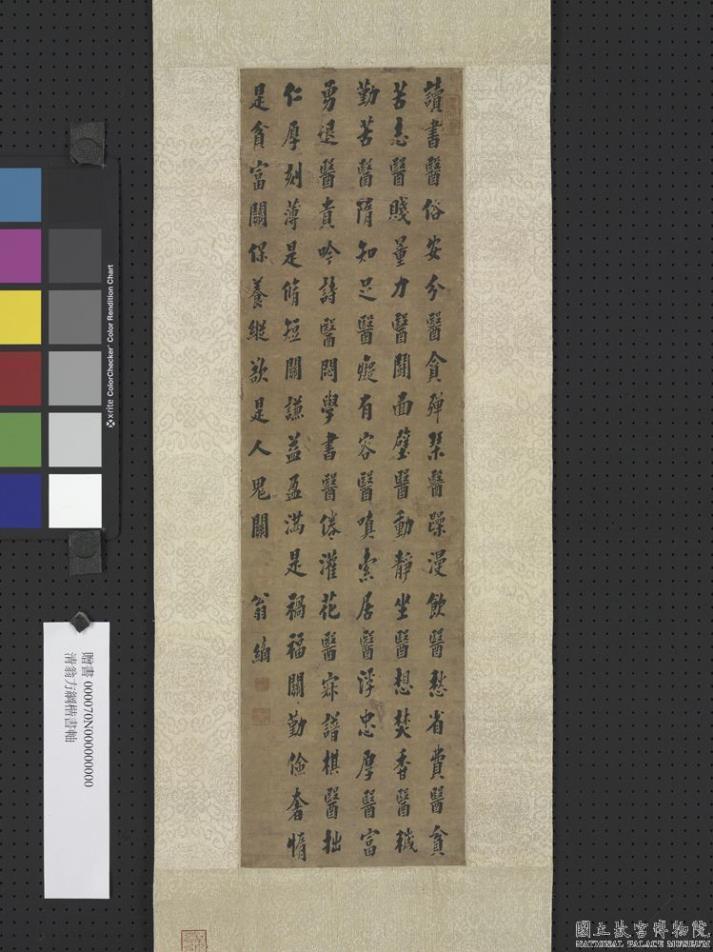 讀書醫俗安分醫貪彈琴醫躁漫飲醫愁省費醫貧
苦志醫賤量力醫鬪面壁醫動靜坐醫想焚香醫穢
勤苦醫隋知足醫癡有容醫嗔索居醫浮忠厚醫富
勇退醫貴吟詩醫悶學書醫倦灌花醫寂譜棋醫拙
仁厚刻薄是脩短關謙益盈滿是禍福關勤儉奢惰
是貧富關保養縱欲是人鬼關 翁綱
贈書 000070N000000000
清翁方綱楷書軸
x-rite ColorChecker Color Rendition Chart
國立故宮博物院
NATIONAL PALACE MUSEUM